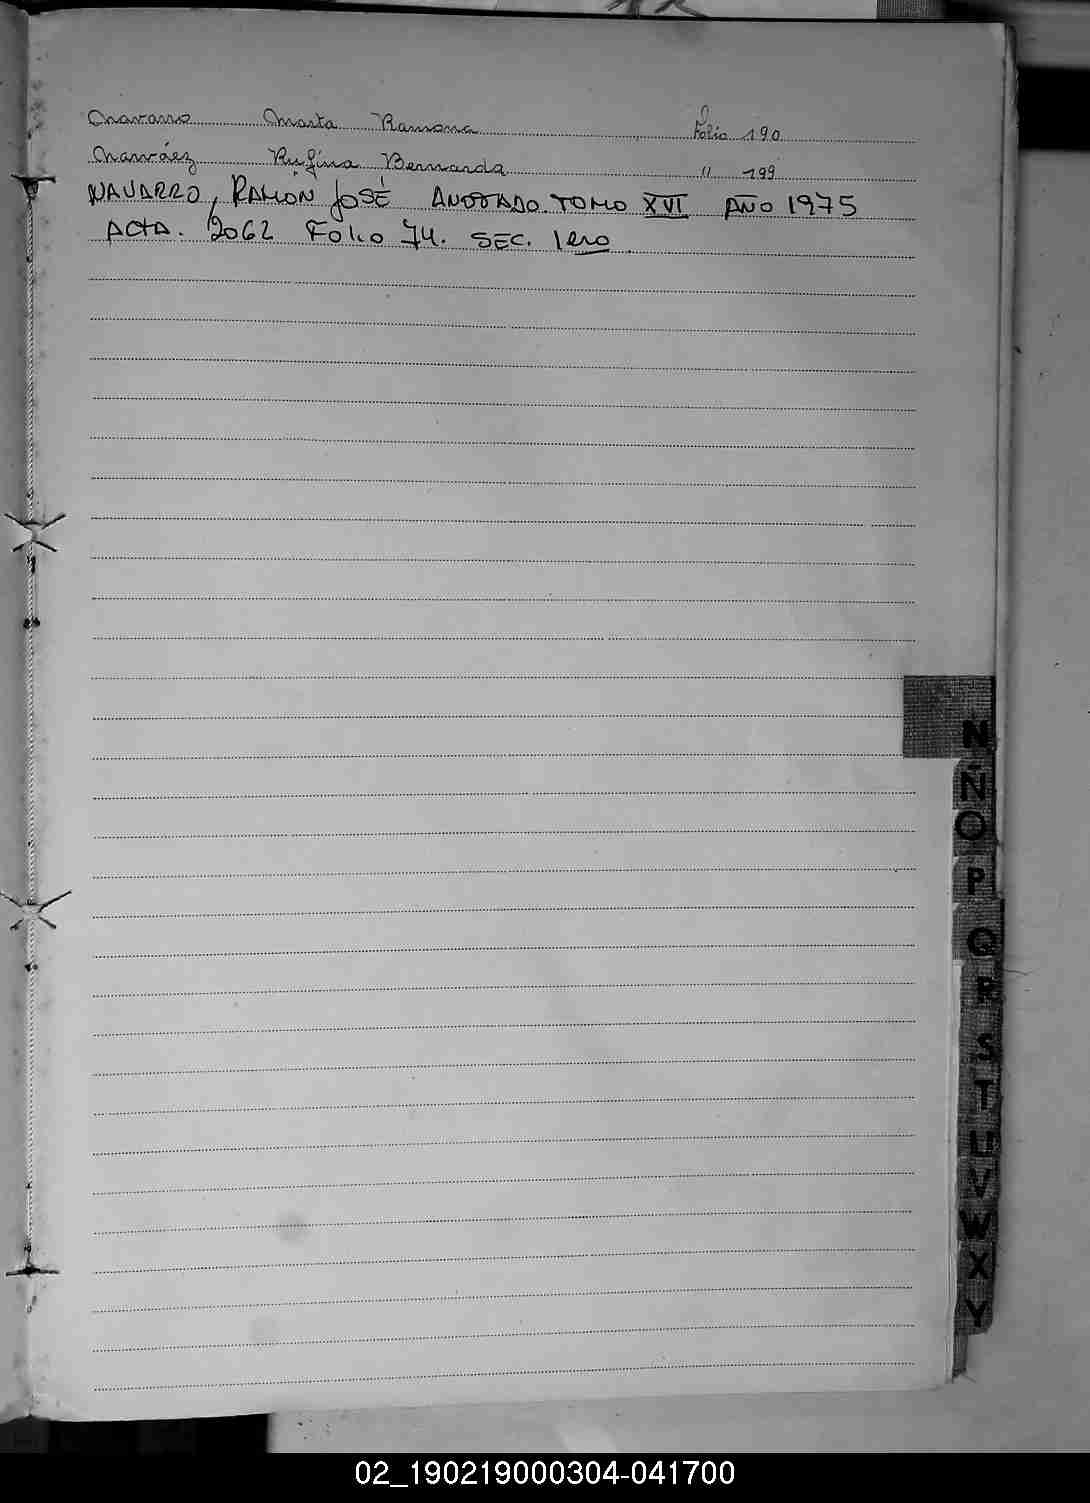 Navarro Marta Ramona Folio 190
Narváez Rufina Bernarda " 199
NAVARRO, RAMÓN JOSÉ ANOTADO. TOMO XVI AÑO 1975
ACTA. 2062 FOLIO 74. SEC. 1ero.
N
Ñ
O
P
Q
R
S
T
U
V
W
X
Y
02_190219000304-041700